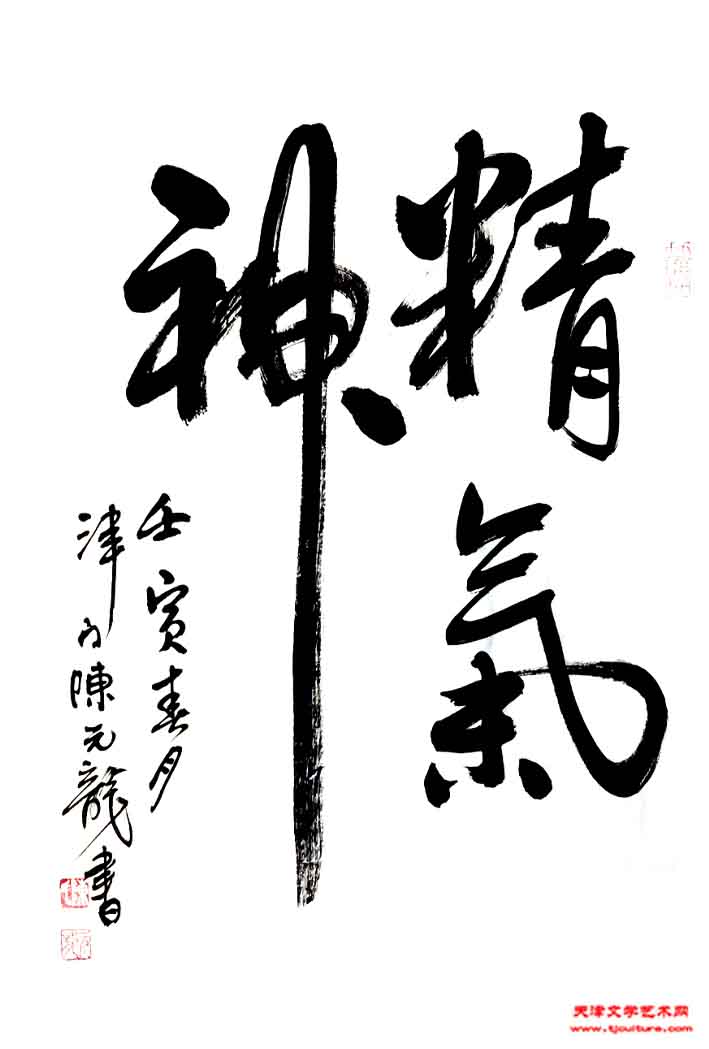 精氣
神
壬寅春月
津门陳元龍書
天津文学艺术网
www.tjculture.com